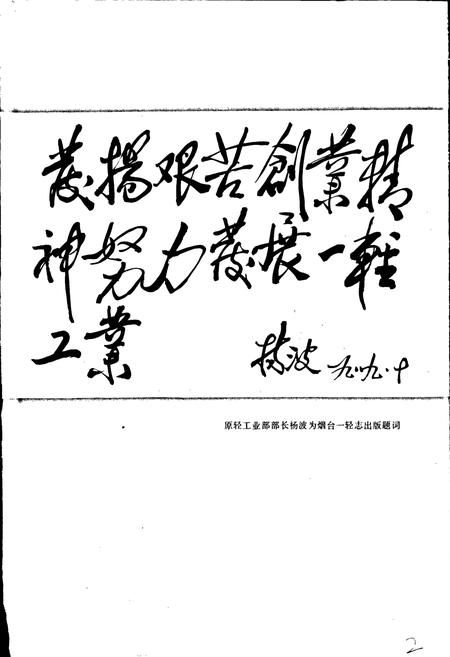 發揚艰苦創業精
神努力發展一輕
工業
楊波 一九八九.十
原轻工业部部长杨波为烟台一轻志出版题词
2